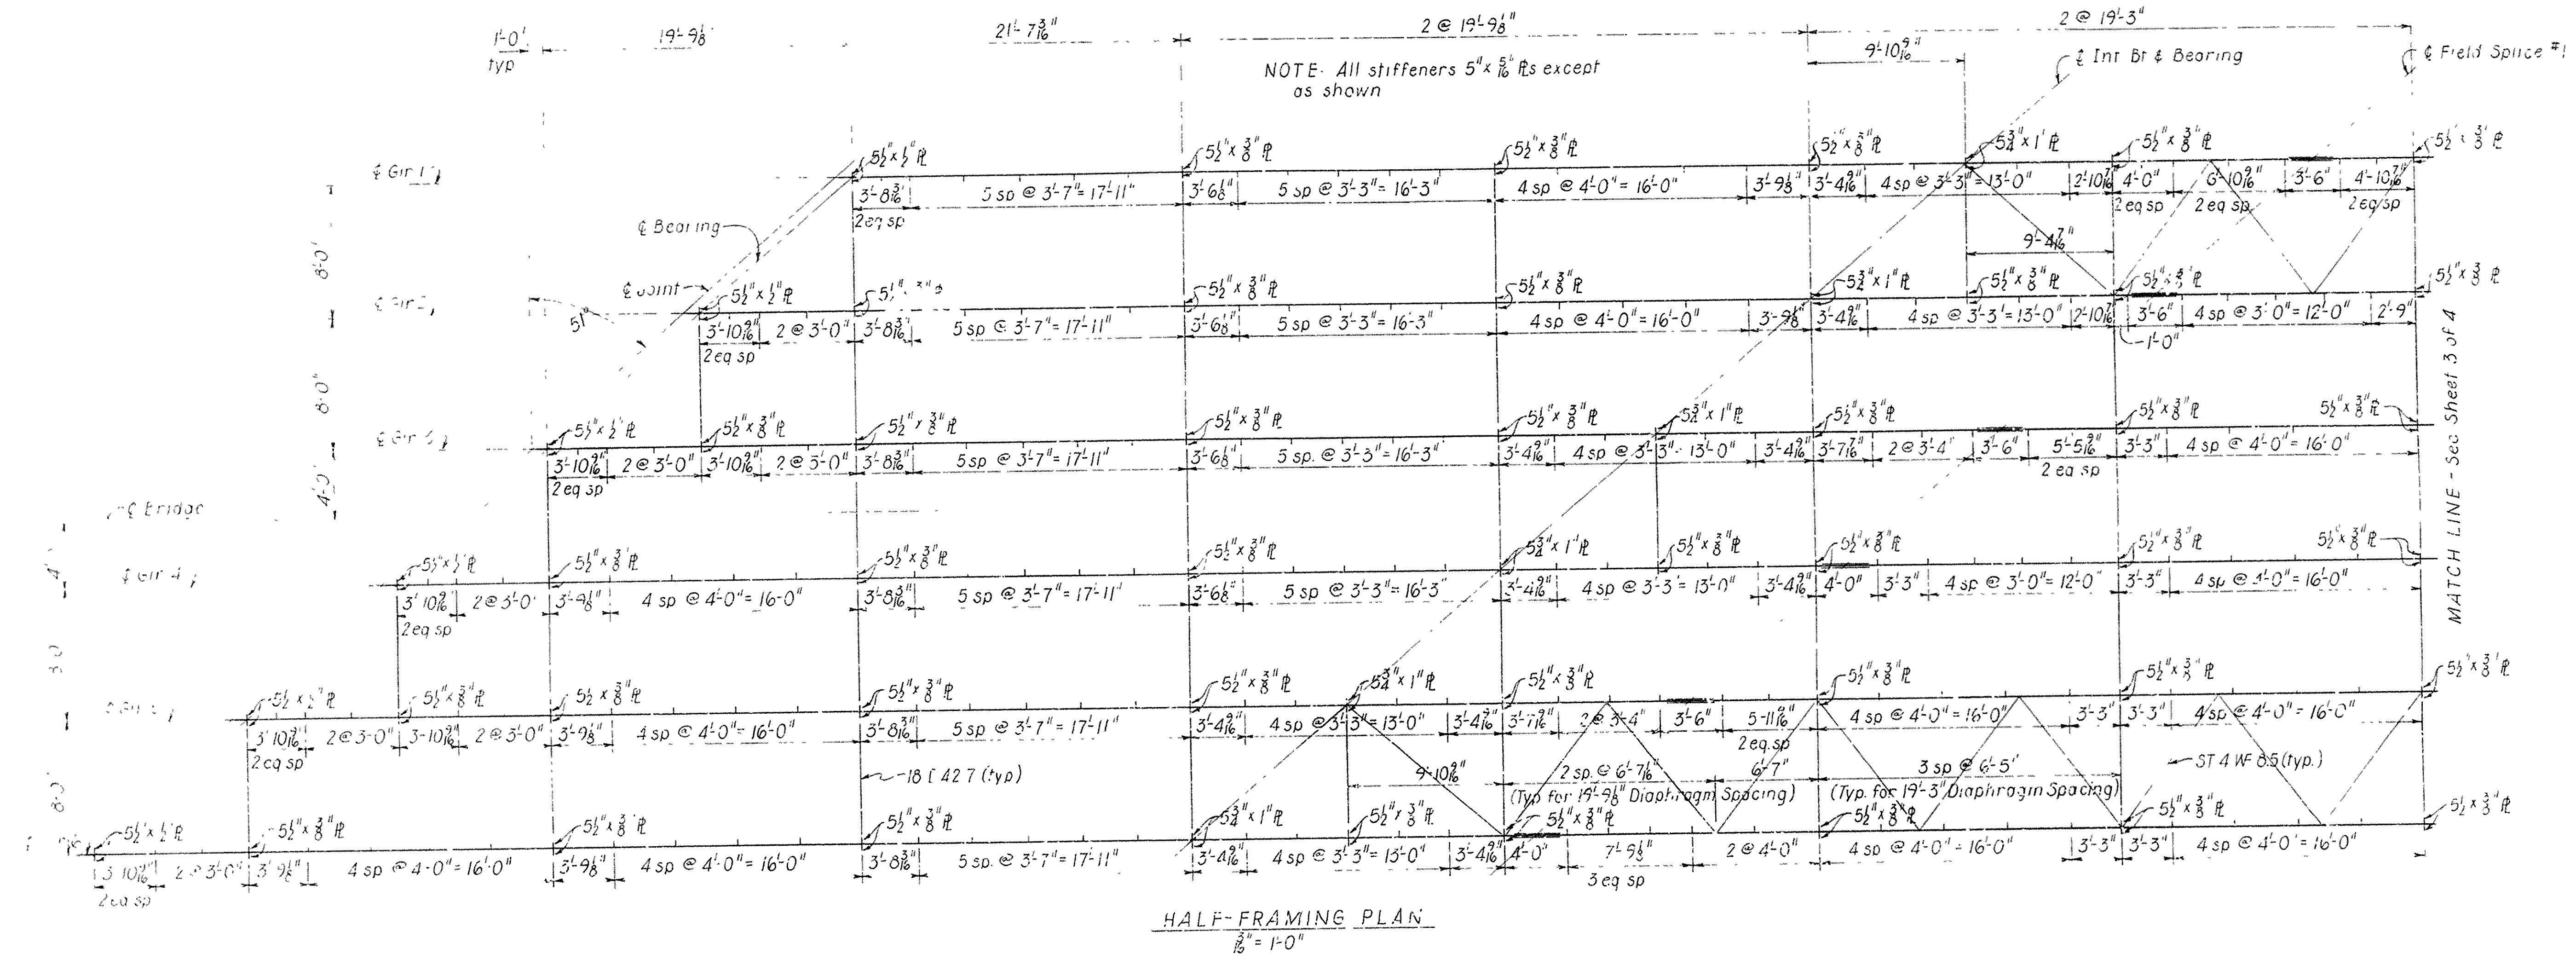 1'-0"
typ
19'-9 1/8"
21'-7 3/16"
2 @ 19'-9 1/8"
2 @ 19'-3"
9'-10 9/16"
℄ Int Bt & Bearing
℄ Field Splice #1
NOTE- All stiffeners 5" x 5/16" ℞s except
as shown
5 1/2" x 1/2" ℞ 5 1/2" x 3/8" ℞ 5 1/2" x 3/8" ℞ 5 1/2" x 3/8" ℞ 5 3/4" x 1" ℞ 5 1/2" x 3/8" ℞ 5 1/2" x 3/8" ℞
℄ Gir 1
3'-8 3/16" 5 sp @ 3'-7" = 17'-11" 3'-6 1/8" 5 sp @ 3'-3" = 16'-3" 4 sp @ 4'-0" = 16'-0" 3'-9 1/8" 3'-4 9/16" 4 sp @ 3'-3" = 13'-0" 2'-10 7/16" 4'-0" 6'-10 9/16" 3'-6" 4'-10 7/16"
2 eq sp 2 eq sp 2 eq sp 2 eq sp
℄ Bearing
8'-0"
9'-4 7/16"
℄ Joint
5 1/2" x 1/2" ℞ 5 1/2" x 3/8" ℞ 5 1/2" x 3/8" ℞ 5 3/4" x 1" ℞ 5 1/2" x 3/8" ℞ 5 1/2" x 3/8" ℞ 5 1/2" x 3/8" ℞
℄ Gir 2
51°
3'-10 9/16" 2 @ 3'-0" 3'-8 3/16" 5 sp @ 3'-7" = 17'-11" 3'-6 1/8" 5 sp @ 3'-3" = 16'-3" 4 sp @ 4'-0" = 16'-0" 3'-9 1/8" 3'-4 9/16" 4 sp @ 3'-3" = 13'-0" 2'-10 7/16" 3'-6" 4 sp @ 3'-0" = 12'-0" 2'-9"
2 eq sp 1'-0"
8'-0"
MATCH LINE - See Sheet 3 of 4
5 1/2" x 1/2" ℞ 5 1/2" x 3/8" ℞ 5 1/2" x 3/8" ℞ 5 1/2" x 3/8" ℞ 5 1/2" x 3/8" ℞ 5 3/4" x 1" ℞ 5 1/2" x 3/8" ℞ 5 1/2" x 3/8" ℞ 5 1/2" x 3/8" ℞
℄ Gir 3
3'-10 9/16" 2 @ 3'-0" 3'-10 9/16" 2 @ 3'-0" 3'-8 3/16" 5 sp @ 3'-7" = 17'-11" 3'-6 1/8" 5 sp. @ 3'-3" = 16'-3" 3'-4 9/16" 4 sp @ 3'-3" = 13'-0" 3'-4 9/16" 3'-7 7/16" 2 @ 3'-4" 3'-6" 5'-5 9/16" 3'-3" 4 sp @ 4'-0" = 16'-0"
2 eq sp 2 eq sp
4'-0"
℄ Bridge
4'
5 1/2" x 1/2" ℞ 5 1/2" x 3/8" ℞ 5 1/2" x 3/8" ℞ 5 1/2" x 3/8" ℞ 5 3/4" x 1" ℞ 5 1/2" x 3/8" ℞ 5 1/2" x 3/8" ℞ 5 1/2" x 3/8" ℞ 5 1/2" x 3/8" ℞
℄ Gir 4
3'-10 9/16" 2 @ 3'-0" 3'-9 1/8" 4 sp @ 4'-0" = 16'-0" 3'-8 3/16" 5 sp @ 3'-7" = 17'-11" 3'-6 1/8" 5 sp @ 3'-3" = 16'-3" 3'-4 9/16" 4 sp @ 3'-3" = 13'-0" 3'-4 9/16" 4'-0" 3'-3" 4 sp @ 3'-0" = 12'-0" 3'-3" 4 sp @ 4'-0" = 16'-0"
2 eq sp
5 1/2" x 1/2" ℞ 5 1/2" x 3/8" ℞ 5 1/2" x 3/8" ℞ 5 1/2" x 3/8" ℞ 5 1/2" x 3/8" ℞ 5 3/4" x 1" ℞ 5 1/2" x 3/8" ℞ 5 1/2" x 3/8" ℞ 5 1/2" x 3/8" ℞ 5 1/2" x 3/8" ℞
3'-10 9/16" 2 @ 3'-0" 3'-10 9/16" 2 @ 3'-0" 3'-9 1/8" 4 sp @ 4'-0" = 16'-0" 3'-8 3/16" 5 sp @ 3'-7" = 17'-11" 3'-4 9/16" 4 sp @ 3'-3" = 13'-0" 3'-4 9/16" 3'-7 9/16" 2 @ 3'-4" 3'-6" 5'-11 9/16" 4 sp @ 4'-0" = 16'-0" 3'-3" 3'-3" 4 sp @ 4'-0" = 16'-0"
2 eq sp 2 eq. sp
18 [ 42.7 (typ)
9'-10 9/16" 2 sp. @ 6'-7 1/16" 6'-7" 3 sp @ 6'-5"
ST 4 WF 8.5 (typ.)
(Typ. for 19'-9 1/8" Diaphragm Spacing) (Typ. for 19'-3" Diaphragm Spacing)
8'-0"
5 1/2" x 1/2" ℞ 5 1/2" x 3/8" ℞ 5 1/2" x 3/8" ℞ 5 1/2" x 3/8" ℞ 5 3/4" x 1" ℞ 5 1/2" x 3/8" ℞ 5 1/2" x 3/8" ℞ 5 1/2" x 3/8" ℞ 5 1/2" x 3/8" ℞ 5 1/2" x 3/8" ℞
3'-10 9/16" 2 @ 3'-0" 3'-9 1/8" 4 sp @ 4'-0" = 16'-0" 3'-9 1/8" 4 sp @ 4'-0" = 16'-0" 3'-8 3/16" 5 sp. @ 3'-7" = 17'-11" 3'-4 9/16" 4 sp @ 3'-3" = 13'-0" 3'-4 9/16" 4'-0" 7'-9 1/8" 2 @ 4'-0" 4 sp @ 4'-0" = 16'-0" 3'-3" 3'-3" 4 sp @ 4'-0" = 16'-0"
2 eq sp 3 eq sp
HALF-FRAMING PLAN
3/16" = 1'-0"